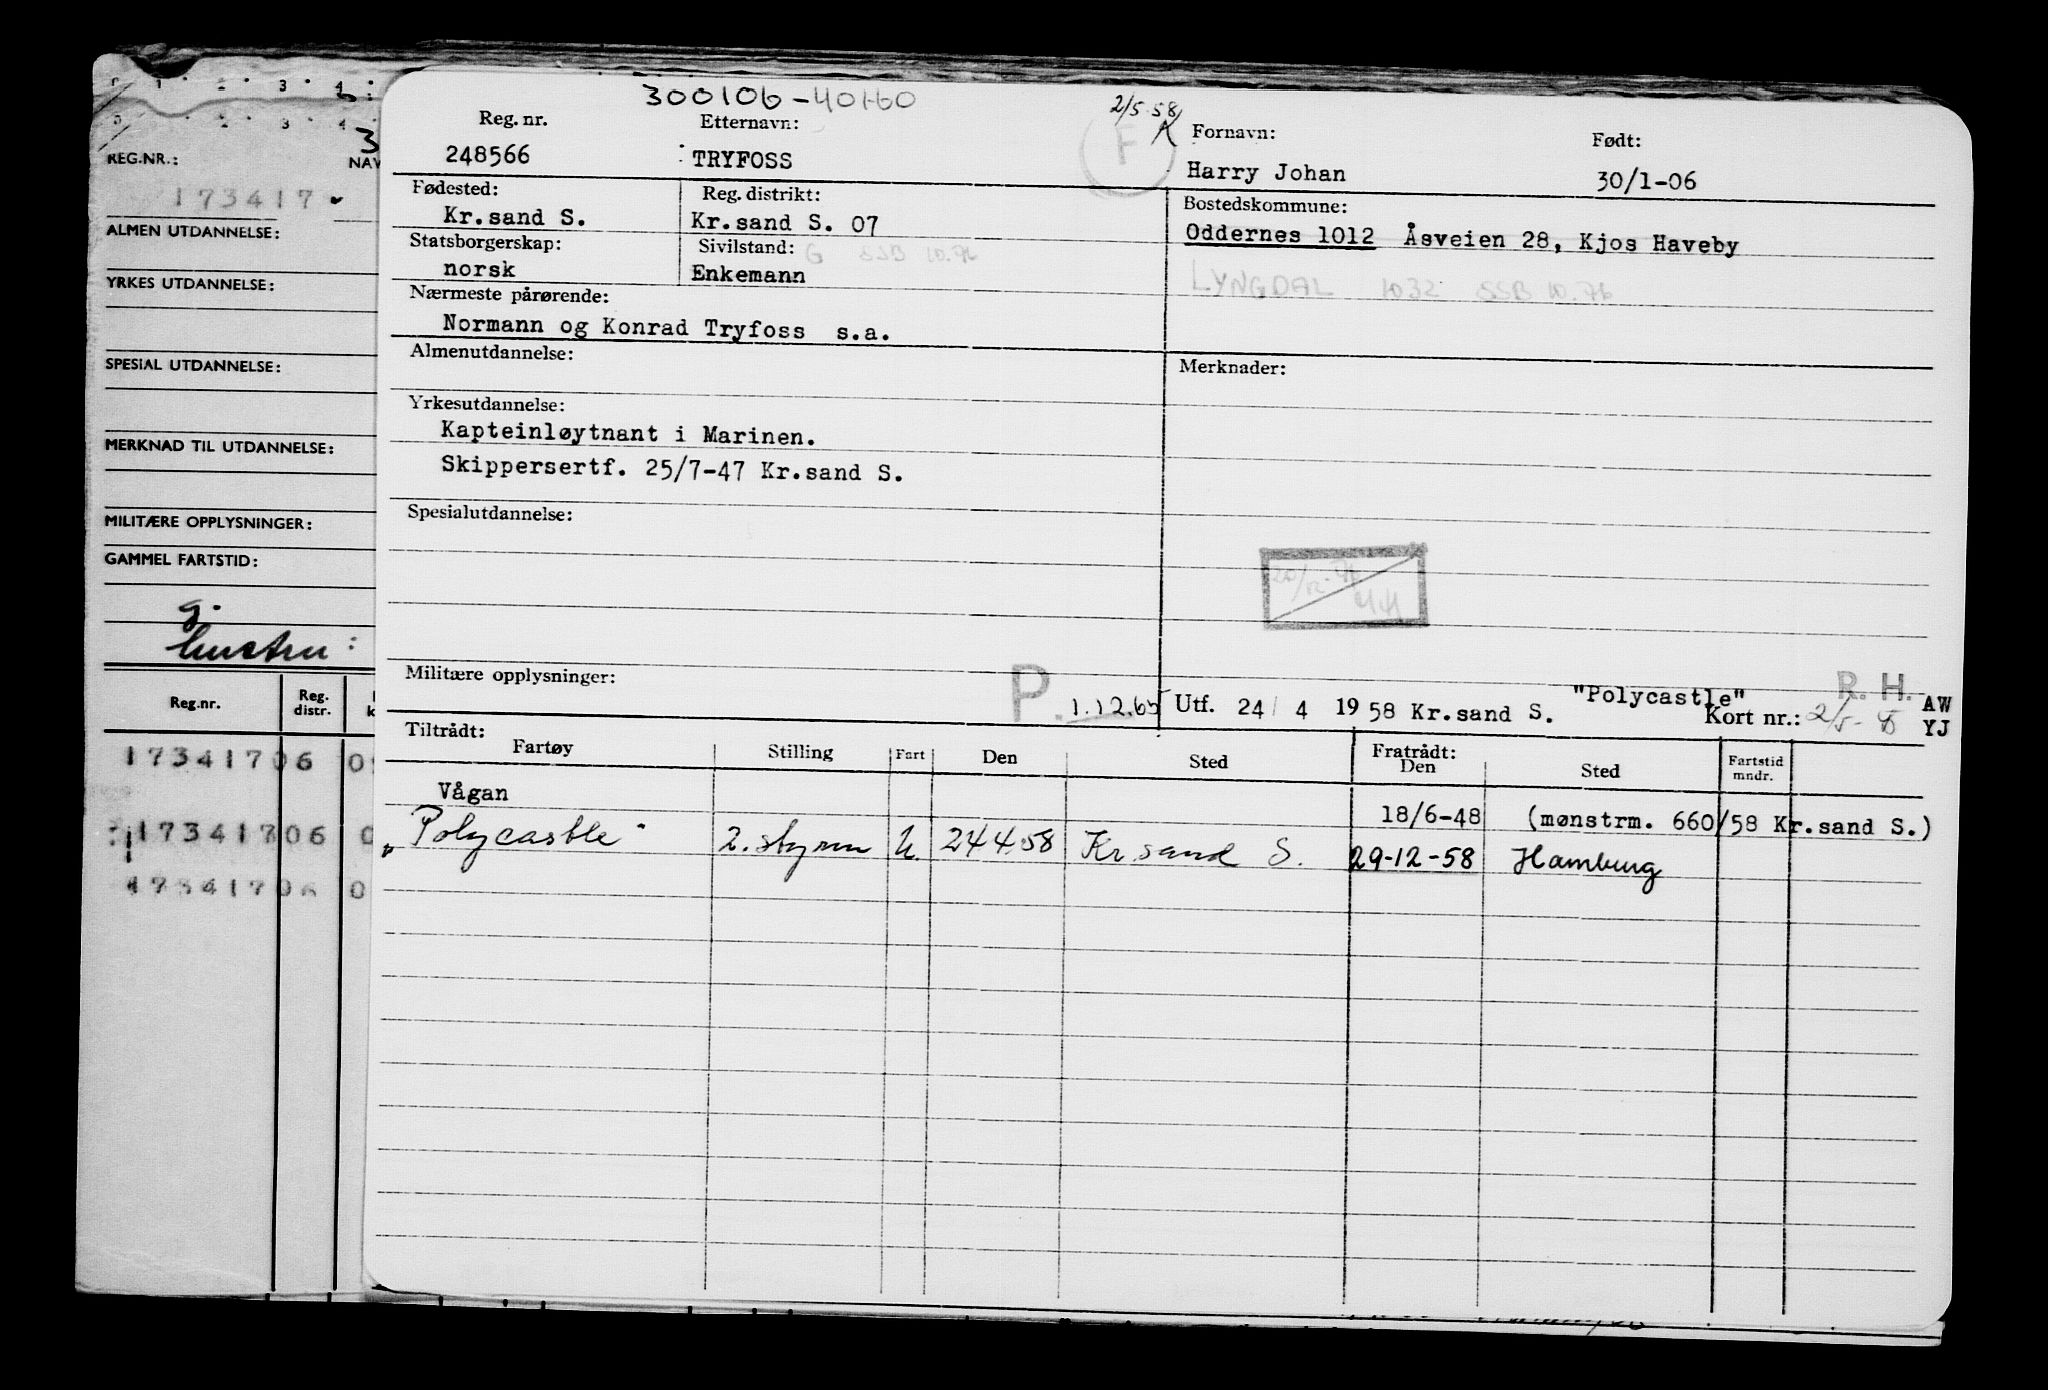 300106-40160
2/5-58
Reg. nr.
Etternavn:
Fornavn:
Født:
F
248566
TRYFOSS
Harry Johan
30/1-06
Fødested:
Reg. distrikt:
Bostedskommune:
Kr.sand S.
Kr.sand S. 07
Oddernes 1012 Åsveien 28, Kjos Haveby
Statsborgerskap:
Sivilstand: G SSB 10.76
norsk
Enkemann
LYNGDAL 1032 SSB 10.76
Nærmeste pårørende:
Normann og Konrad Tryfoss s.a.
Almenutdannelse:
Merknader:
Yrkesutdannelse:
Kapteinløytnant i Marinen.
Skippersertf. 25/7-47 Kr.sand S.
Spesialutdannelse:
Militære opplysninger:
P. 1.12.65
Utf. 24/4 1958 Kr.sand S. "Polycastle"
R. H. AW
Kort nr.: 2/5- YJ
Tiltrådt:
Fartøy
Stilling
Fart
Den
Sted
Fratrådt:
Den
Sted
Fartstid
mndr.
Vågan
18/6-48 (mønstrm. 660/58 Kr.sand S.)
"Polycastle" 2. styrm U. 24.4.58 Kr.sand S. 29-12-58 Hamburg
1 2 3 4
2 3 4
3
REG.NR.:
NAV
173417
ALMEN UTDANNELSE:
YRKES UTDANNELSE:
SPESIAL UTDANNELSE:
MERKNAD TIL UTDANNELSE:
MILITÆRE OPPLYSNINGER:
GAMMEL FARTSTID:
g.
hustru:
Reg.nr.
Reg.
distr.
k
17341706 0
17341706 0
17341706 0